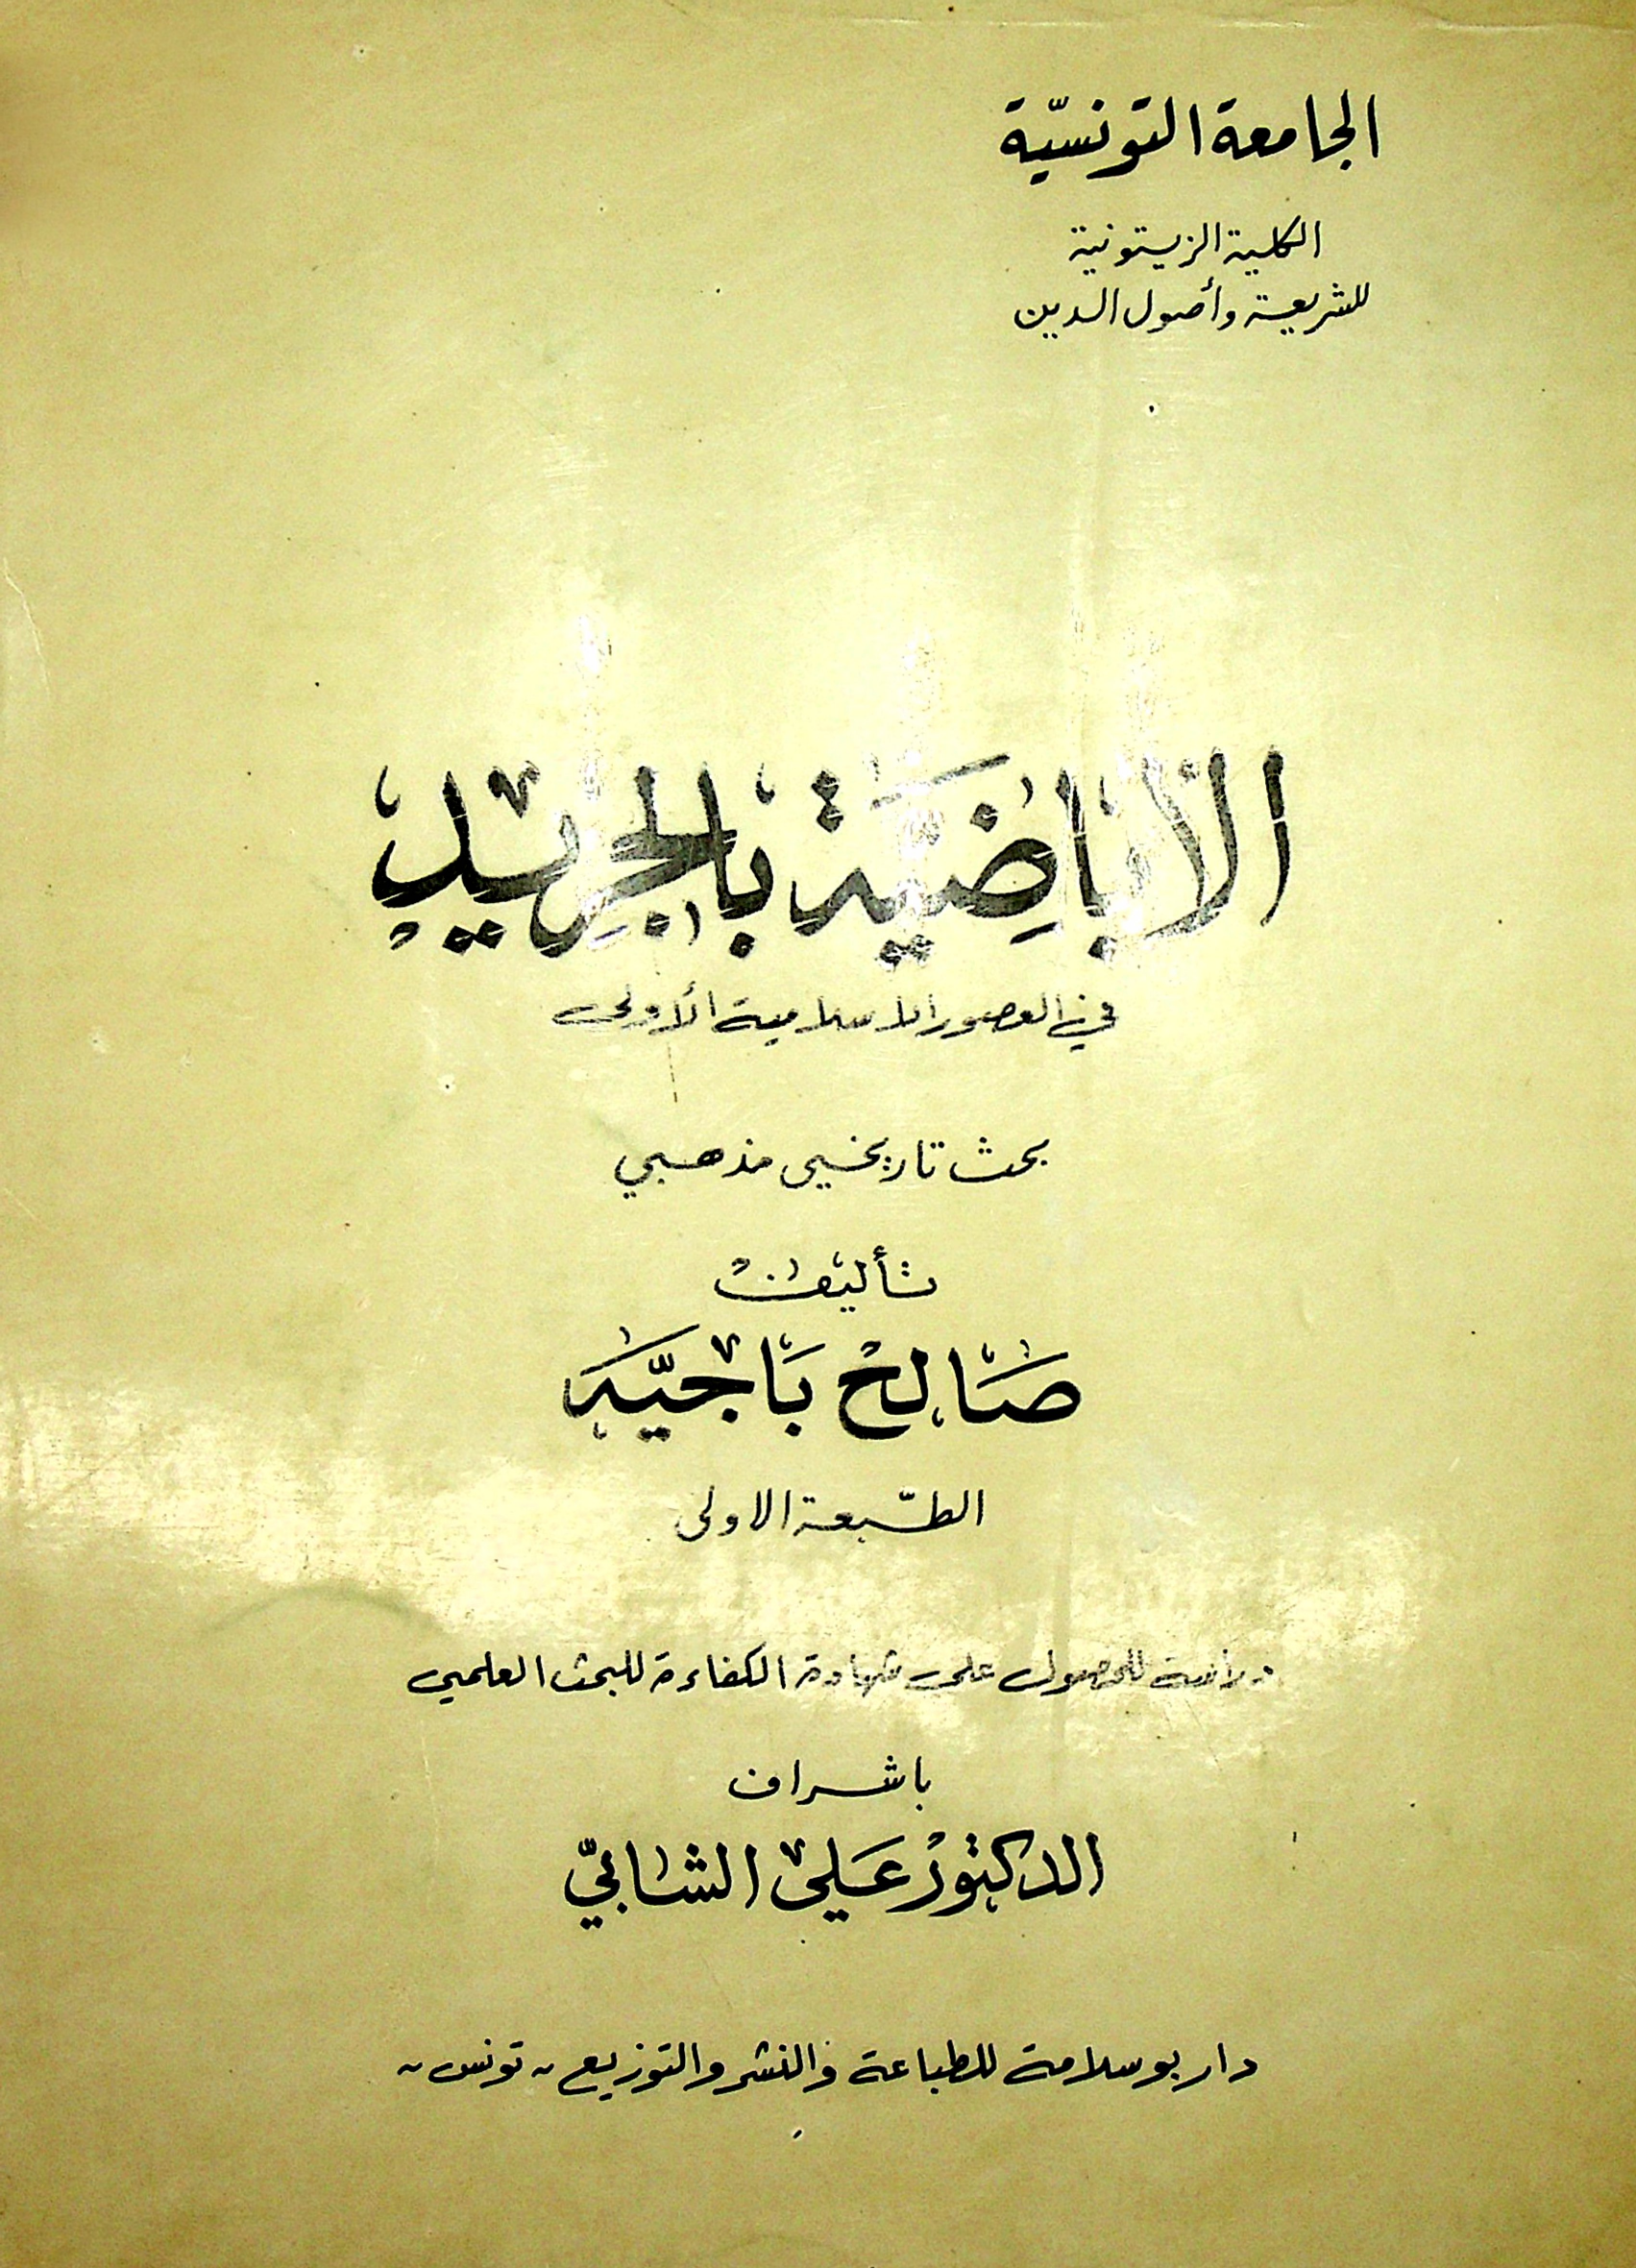 الجامعة التونسيّة
الكلية الزيتونية
للشريعة وأصول الدين
الأباضِيَّة بالجَرِيد
في العصور الاسلامية الأولى
بحث تاريخي مذهبي
تأليف
صَالح بَاجيَّه
الطّبعة الاولى
دراسة للحصول على شهادة الكفاءة للبحث العلمي
باشراف
الدكتور عَلي الشابيّ
دار بوسلامة للطباعة والنشر والتوزيع - تونس -